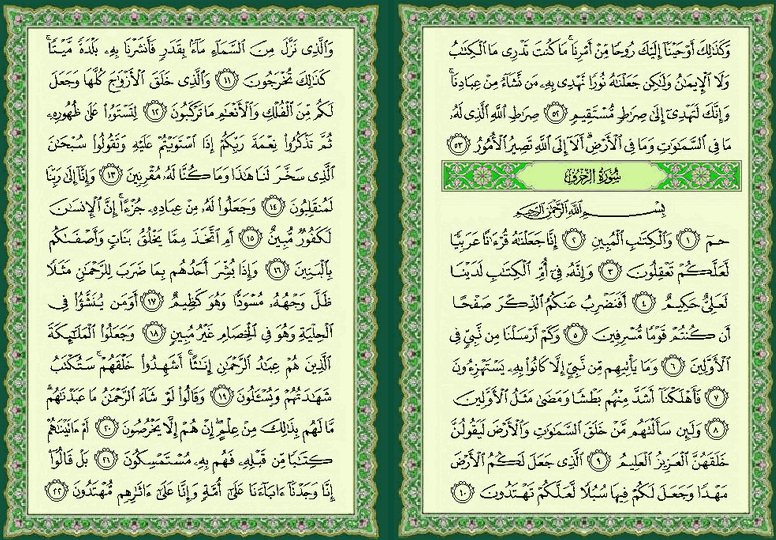 وَكَذَٰلِكَ أَوْحَيْنَآ إِلَيْكَ رُوحًا مِّنْ أَمْرِنَا ۚ مَا كُنتَ تَدْرِى مَا ٱلْكِتَٰبُ
وَلَا ٱلْإِيمَٰنُ وَلَٰكِن جَعَلْنَٰهُ نُورًا نَّهْدِى بِهِۦ مَن نَّشَآءُ مِنْ عِبَادِنَا ۚ
وَإِنَّكَ لَتَهْدِىٓ إِلَىٰ صِرَٰطٍ مُّسْتَقِيمٍ ٥٢ صِرَٰطِ ٱللَّهِ ٱلَّذِى لَهُۥ
مَا فِى ٱلسَّمَٰوَٰتِ وَمَا فِى ٱلْأَرْضِ ۗ أَلَآ إِلَى ٱللَّهِ تَصِيرُ ٱلْأُمُورُ ٥٣
سُورَةُ الزُّخْرُفِ
بِسْمِ ٱللَّهِ ٱلرَّحْمَٰنِ ٱلرَّحِيمِ
حمٓ ١ وَٱلْكِتَٰبِ ٱلْمُبِينِ ٢ إِنَّا جَعَلْنَٰهُ قُرْءَٰنًا عَرَبِيًّا
لَّعَلَّكُمْ تَعْقِلُونَ ٣ وَإِنَّهُۥ فِىٓ أُمِّ ٱلْكِتَٰبِ لَدَيْنَا
لَعَلِىٌّ حَكِيمٌ ٤ أَفَنَضْرِبُ عَنكُمُ ٱلذِّكْرَ صَفْحًا
أَن كُنتُمْ قَوْمًا مُّسْرِفِينَ ٥ وَكَمْ أَرْسَلْنَا مِن نَّبِىٍّ فِى
ٱلْأَوَّلِينَ ٦ وَمَا يَأْتِيهِم مِّن نَّبِىٍّ إِلَّا كَانُوا۟ بِهِۦ يَسْتَهْزِءُونَ
٧ فَأَهْلَكْنَآ أَشَدَّ مِنْهُم بَطْشًا وَمَضَىٰ مَثَلُ ٱلْأَوَّلِينَ
٨ وَلَئِن سَأَلْتَهُم مَّنْ خَلَقَ ٱلسَّمَٰوَٰتِ وَٱلْأَرْضَ لَيَقُولُنَّ
خَلَقَهُنَّ ٱلْعَزِيزُ ٱلْعَلِيمُ ٩ ٱلَّذِى جَعَلَ لَكُمُ ٱلْأَرْضَ
مَهْدًا وَجَعَلَ لَكُمْ فِيهَا سُبُلًا لَّعَلَّكُمْ تَهْتَدُونَ ١٠
وَٱلَّذِى نَزَّلَ مِنَ ٱلسَّمَآءِ مَآءًۢ بِقَدَرٍ فَأَنشَرْنَا بِهِۦ بَلْدَةً مَّيْتًا ۚ
كَذَٰلِكَ تُخْرَجُونَ ١١ وَٱلَّذِى خَلَقَ ٱلْأَزْوَٰجَ كُلَّهَا وَجَعَلَ
لَكُم مِّنَ ٱلْفُلْكِ وَٱلْأَنْعَٰمِ مَا تَرْكَبُونَ ١٢ لِتَسْتَوُۥا۟ عَلَىٰ ظُهُورِهِۦ
ثُمَّ تَذْكُرُوا۟ نِعْمَةَ رَبِّكُمْ إِذَا ٱسْتَوَيْتُمْ عَلَيْهِ وَتَقُولُوا۟ سُبْحَٰنَ
ٱلَّذِى سَخَّرَ لَنَا هَٰذَا وَمَا كُنَّا لَهُۥ مُقْرِنِينَ ١٣ وَإِنَّآ إِلَىٰ رَبِّنَا
لَمُنقَلِبُونَ ١٤ وَجَعَلُوا۟ لَهُۥ مِنْ عِبَادِهِۦ جُزْءًا ۚ إِنَّ ٱلْإِنسَٰنَ
لَكَفُورٌ مُّبِينٌ ١٥ أَمِ ٱتَّخَذَ مِمَّا يَخْلُقُ بَنَاتٍ وَأَصْفَىٰكُم
بِٱلْبَنِينَ ١٦ وَإِذَا بُشِّرَ أَحَدُهُم بِمَا ضَرَبَ لِلرَّحْمَٰنِ مَثَلًا
ظَلَّ وَجْهُهُۥ مُسْوَدًّا وَهُوَ كَظِيمٌ ١٧ أَوَمَن يُنَشَّؤُا۟ فِى
ٱلْحِلْيَةِ وَهُوَ فِى ٱلْخِصَامِ غَيْرُ مُبِينٍ ١٨ وَجَعَلُوا۟ ٱلْمَلَٰٓئِكَةَ
ٱلَّذِينَ هُمْ عِبَٰدُ ٱلرَّحْمَٰنِ إِنَٰثًا ۚ أَشَهِدُوا۟ خَلْقَهُمْ ۚ سَتُكْتَبُ
شَهَٰدَتُهُمْ وَيُسْـَٔلُونَ ١٩ وَقَالُوا۟ لَوْ شَآءَ ٱلرَّحْمَٰنُ مَا عَبَدْنَٰهُم ۗ
مَّا لَهُم بِذَٰلِكَ مِنْ عِلْمٍ ۖ إِنْ هُمْ إِلَّا يَخْرُصُونَ ٢٠ أَمْ ءَاتَيْنَٰهُمْ
كِتَٰبًا مِّن قَبْلِهِۦ فَهُم بِهِۦ مُسْتَمْسِكُونَ ٢١ بَلْ قَالُوٓا۟
إِنَّا وَجَدْنَآ ءَابَآءَنَا عَلَىٰٓ أُمَّةٍ وَإِنَّا عَلَىٰٓ ءَاثَٰرِهِم مُّهْتَدُونَ ٢٢